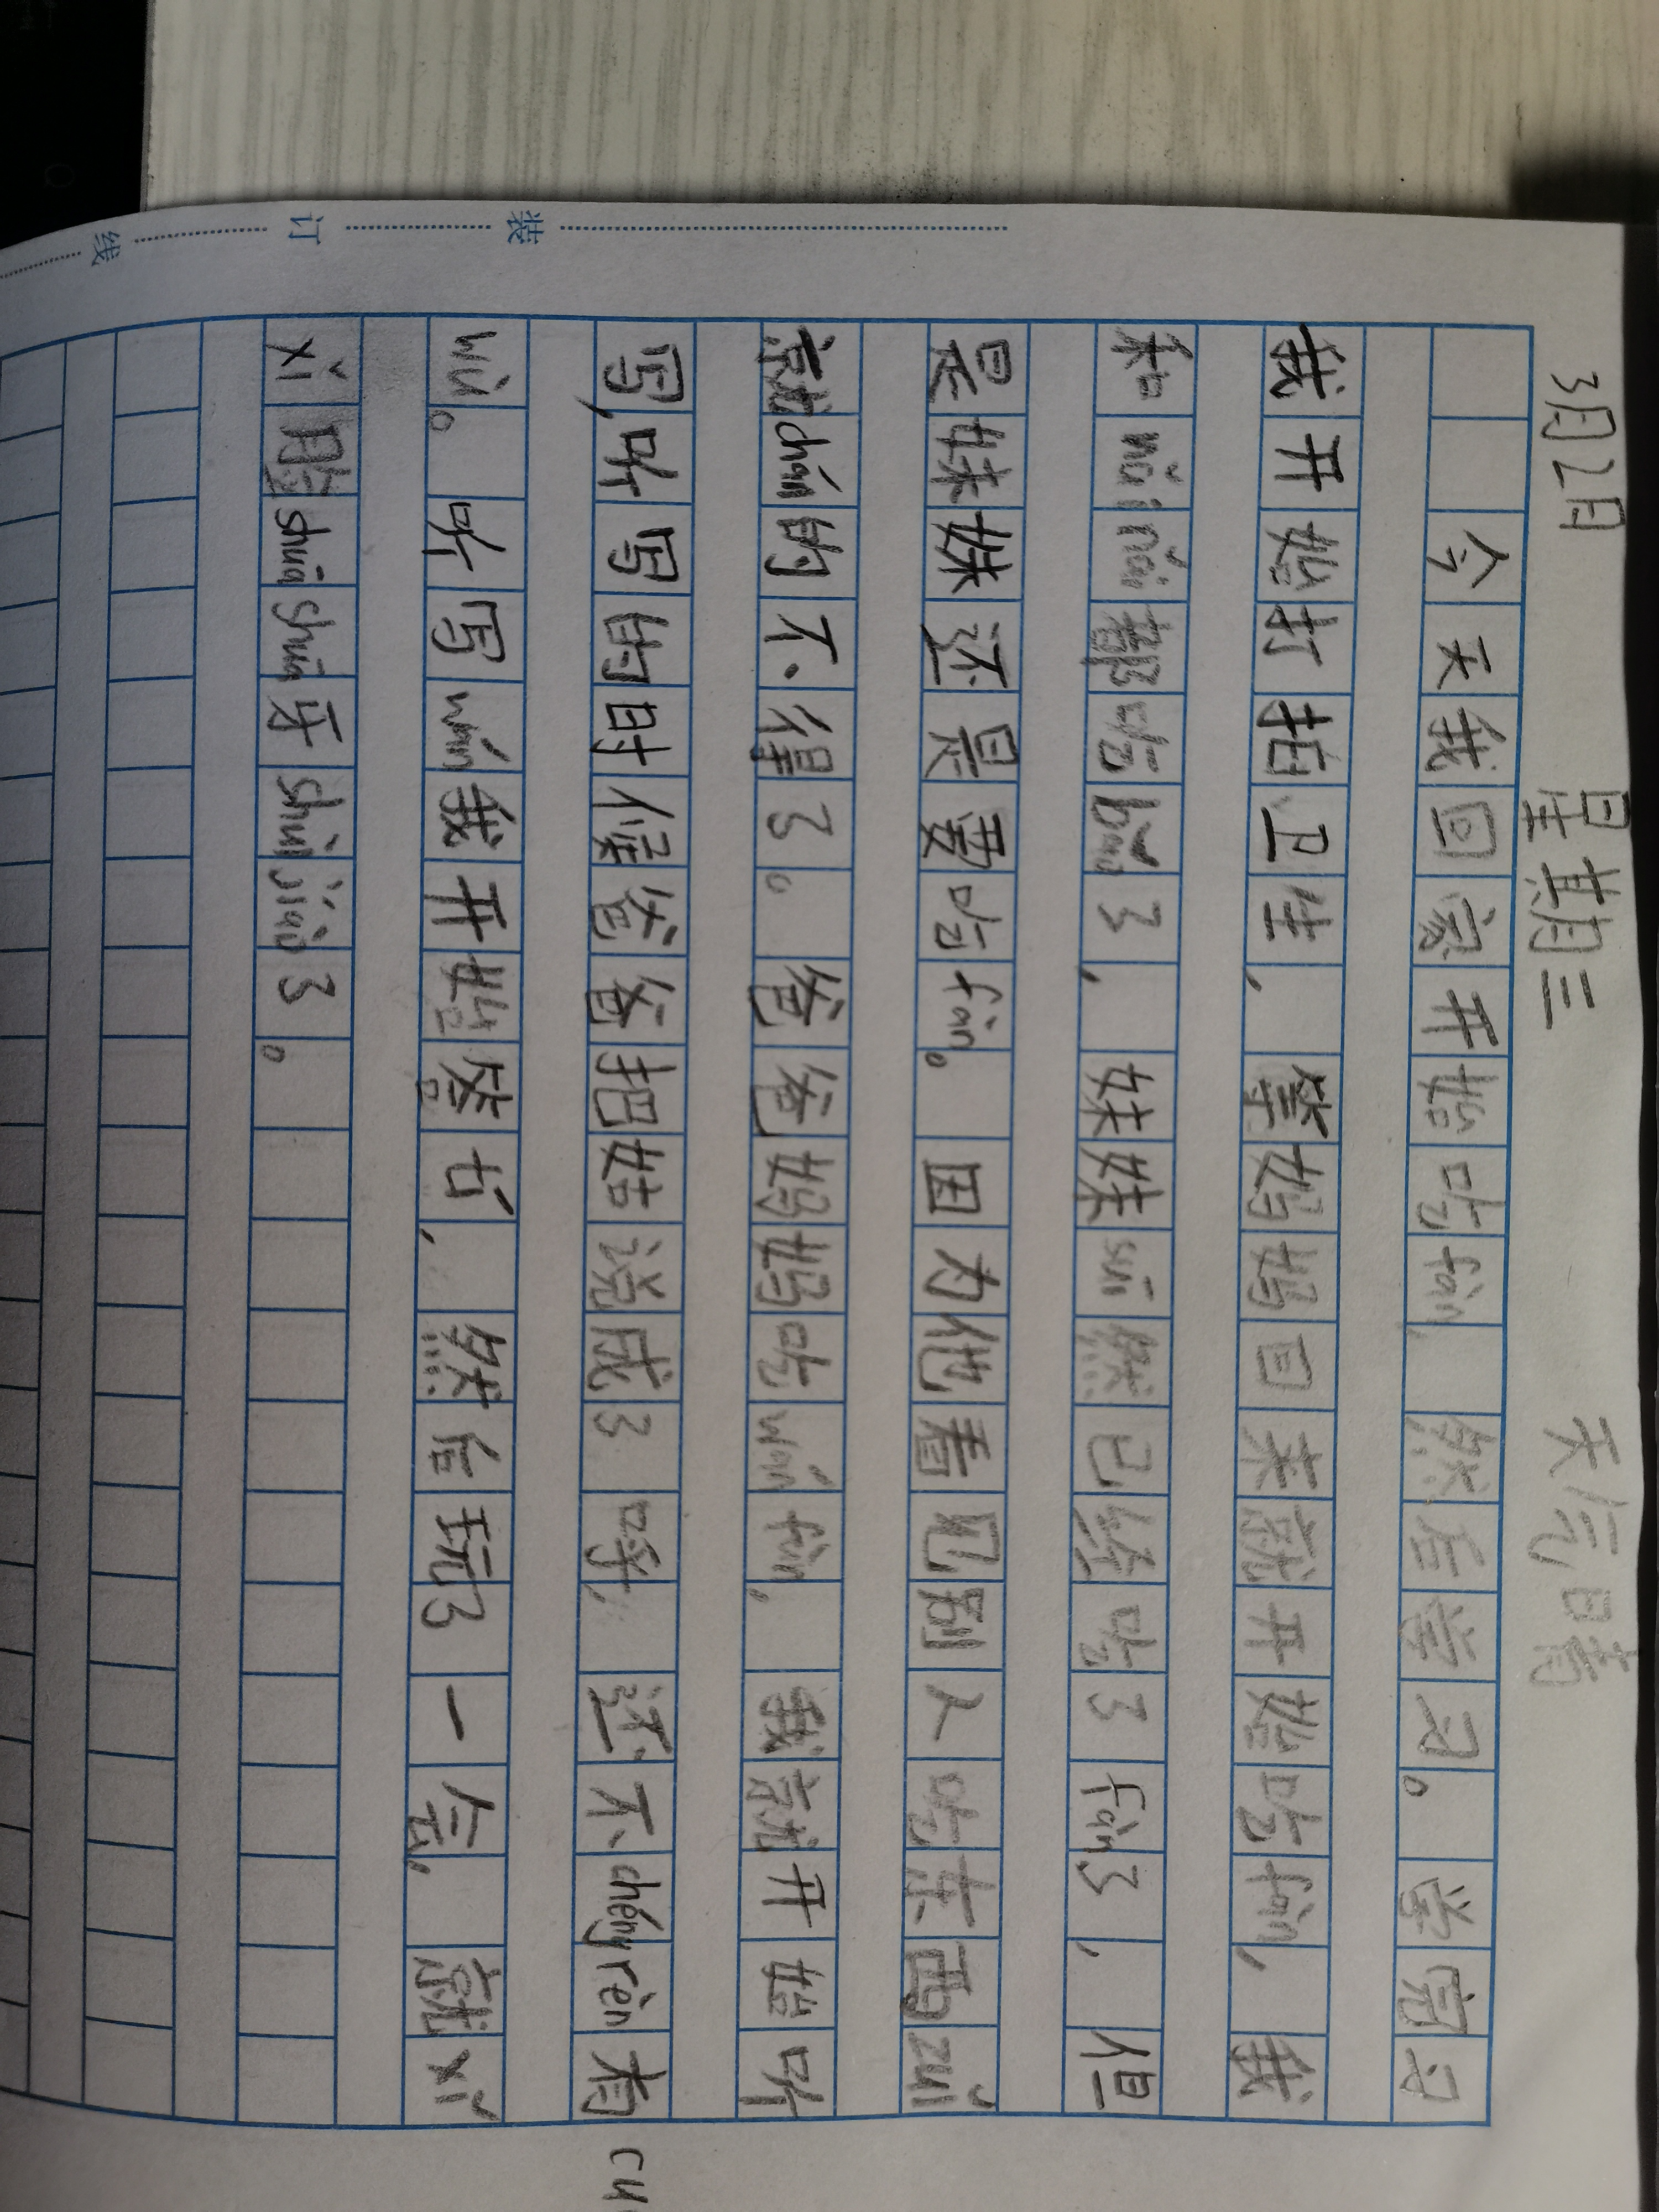 3月2日 星期三 天气晴
今天我回家开始吃fàn,然后学习。学完习
我开始打扫卫生,等妈妈回来就开始吃fàn,我
和nǎi nai都吃bǎo了,妹妹suī然已经吃了fàn了,但
是妹妹还是要吃fàn。因为他看见别人吃东西zuǐ
就chán的不得了。爸爸妈妈吃wán fàn,我就开始听
写,听写的时候爸爸把姑说成了呼,还不chéng rèn有cu
wù。听写wán我开始答古,然后玩了一会,就xǐ
xǐ脸shuā shuā牙shuì jiào了。
装 订 线